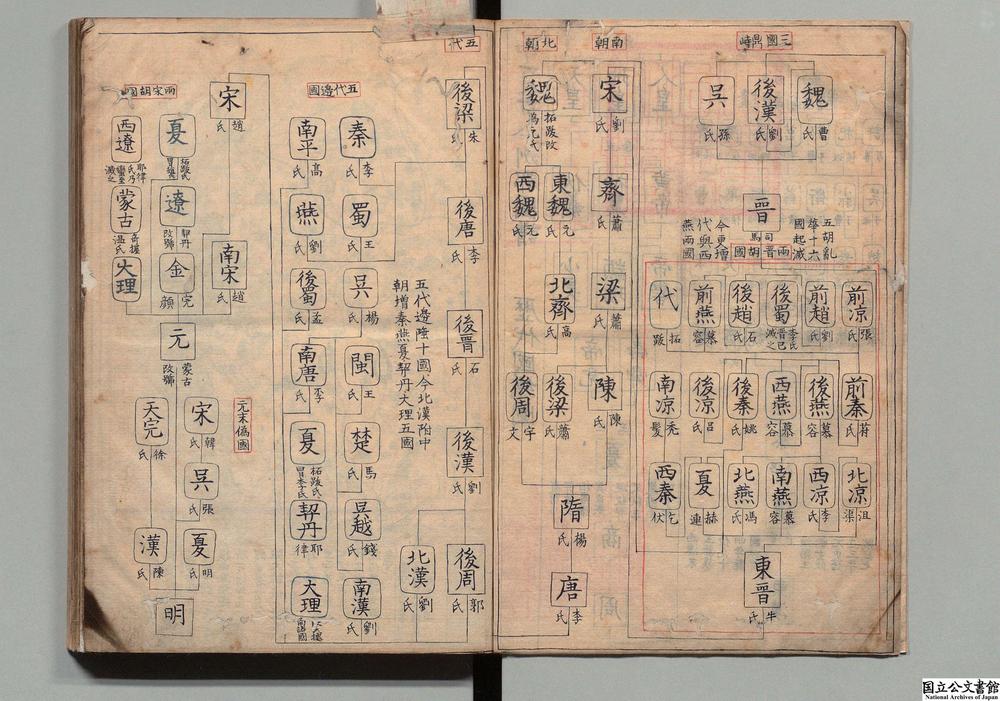 三國鼎峙
魏
曹氏
後漢
劉氏
吳
孫氏
晉
司馬氏
兩晉胡國
五胡亂
華十六
國起滅
今更增
代與西
燕兩國
前凉
張氏
前趙
劉氏
後蜀
李氏
晉已
滅之
後趙
石氏
前燕
慕容
代
拓跋
前秦
苻氏
後燕
慕容
西燕
慕容
後秦
姚氏
後凉
呂氏
南凉
禿髮
北凉
沮渠
西凉
李氏
南燕
慕容
北燕
馮氏
夏
赫連
西秦
乞伏
東晉
牛氏
南朝
宋
劉氏
齊
蕭氏
梁
蕭氏
陳
陳氏
北朝
魏
拓跋改
爲元氏
東魏
元氏
西魏
元氏
北齊
高氏
後梁
蕭氏
後周
宇文
隋
楊氏
唐
李氏
五代
後梁
朱氏
後唐
李氏
後晉
石氏
後漢
劉氏
後周
郭氏
北漢
劉氏
五代邊陲十國今北漢附中
朝增秦燕夏契丹大理五國
五代邊國
秦
李氏
蜀
王氏
吳
楊氏
閩
王氏
楚
馬氏
吳越
錢氏
南漢
劉氏
南平
高氏
燕
劉氏
後蜀
孟氏
南唐
李氏
夏
拓跋氏
冒李氏
契丹
耶律
大理
宋
趙氏
南宋
趙氏
兩宋胡國
夏
拓跋氏
遼
契丹
改號
金
完顏
西遼
耶律
氏乃
蠻
滅之
蒙古
奇渥
温氏
大理
元
蒙古
改號
元末僞國
宋
韓氏
吳
張氏
夏
明氏
天完
徐氏
漢
陳氏
明
国立公文書館
National Archives of Japan